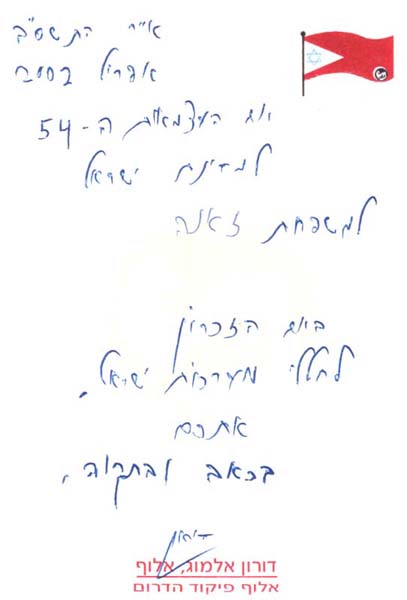 אייר התשס"ב
אפריל 2002
יום העצמאות ה-54
למדינת ישראל
למשפחת זאנה
ביום הזכרון
לחללי מערכות ישראל,
אתכם
בכאב ובתקוה,
דורון
דורון אלמוג, אלוף
אלוף פיקוד הדרום